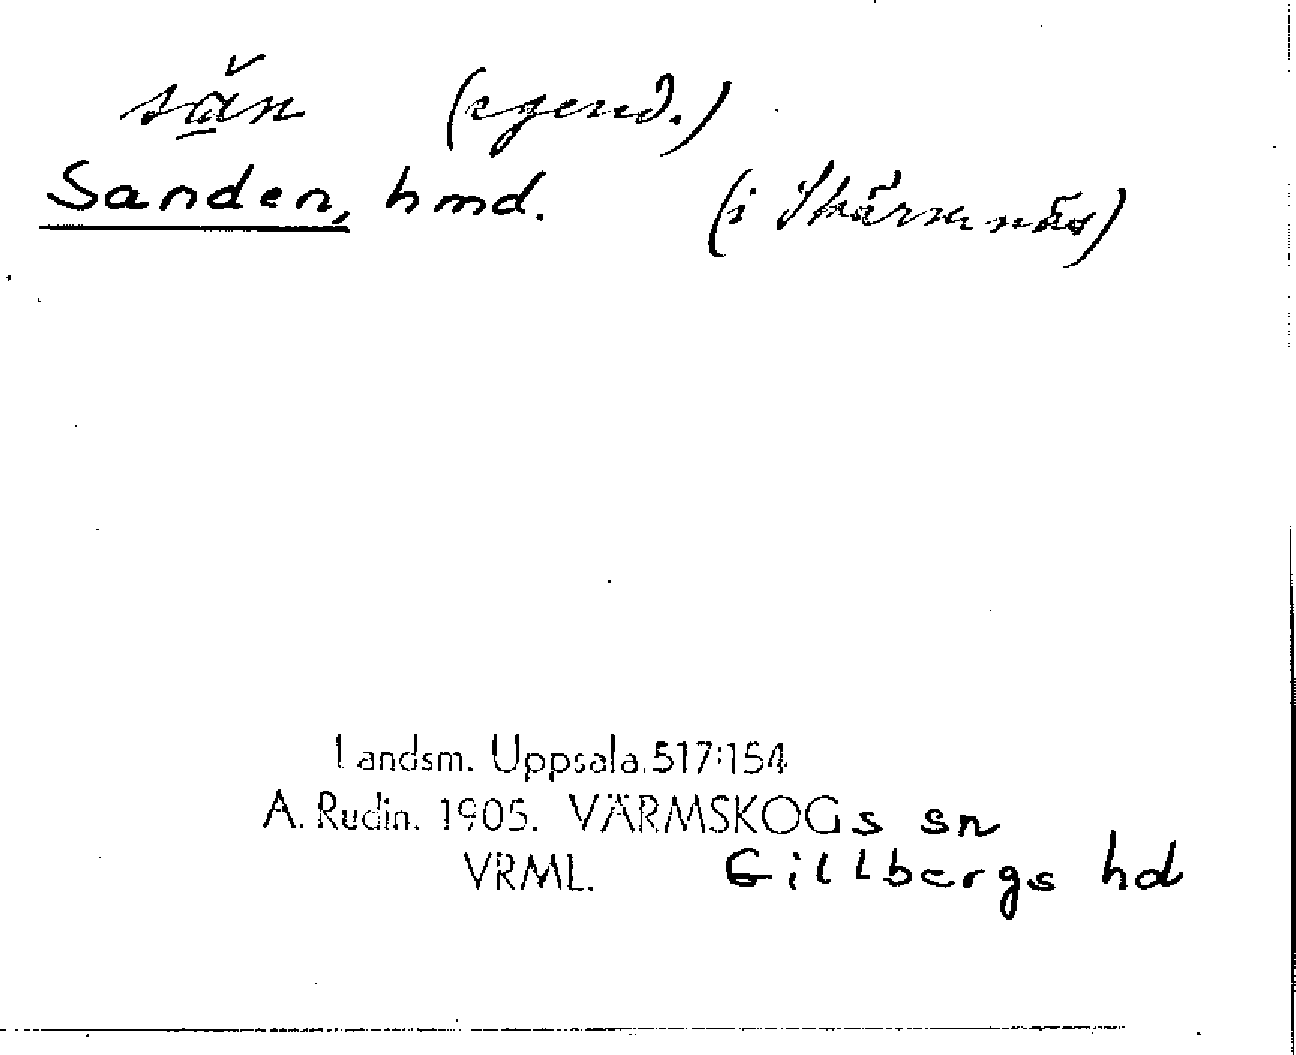 sǎ̱n (egend.)
Sanden, hmd. (i Skårsnäs)
Landsm. Uppsala 517:154
A. Rudin. 1905. VÄRMSKOGs sn
VRML. Gillbergs hd